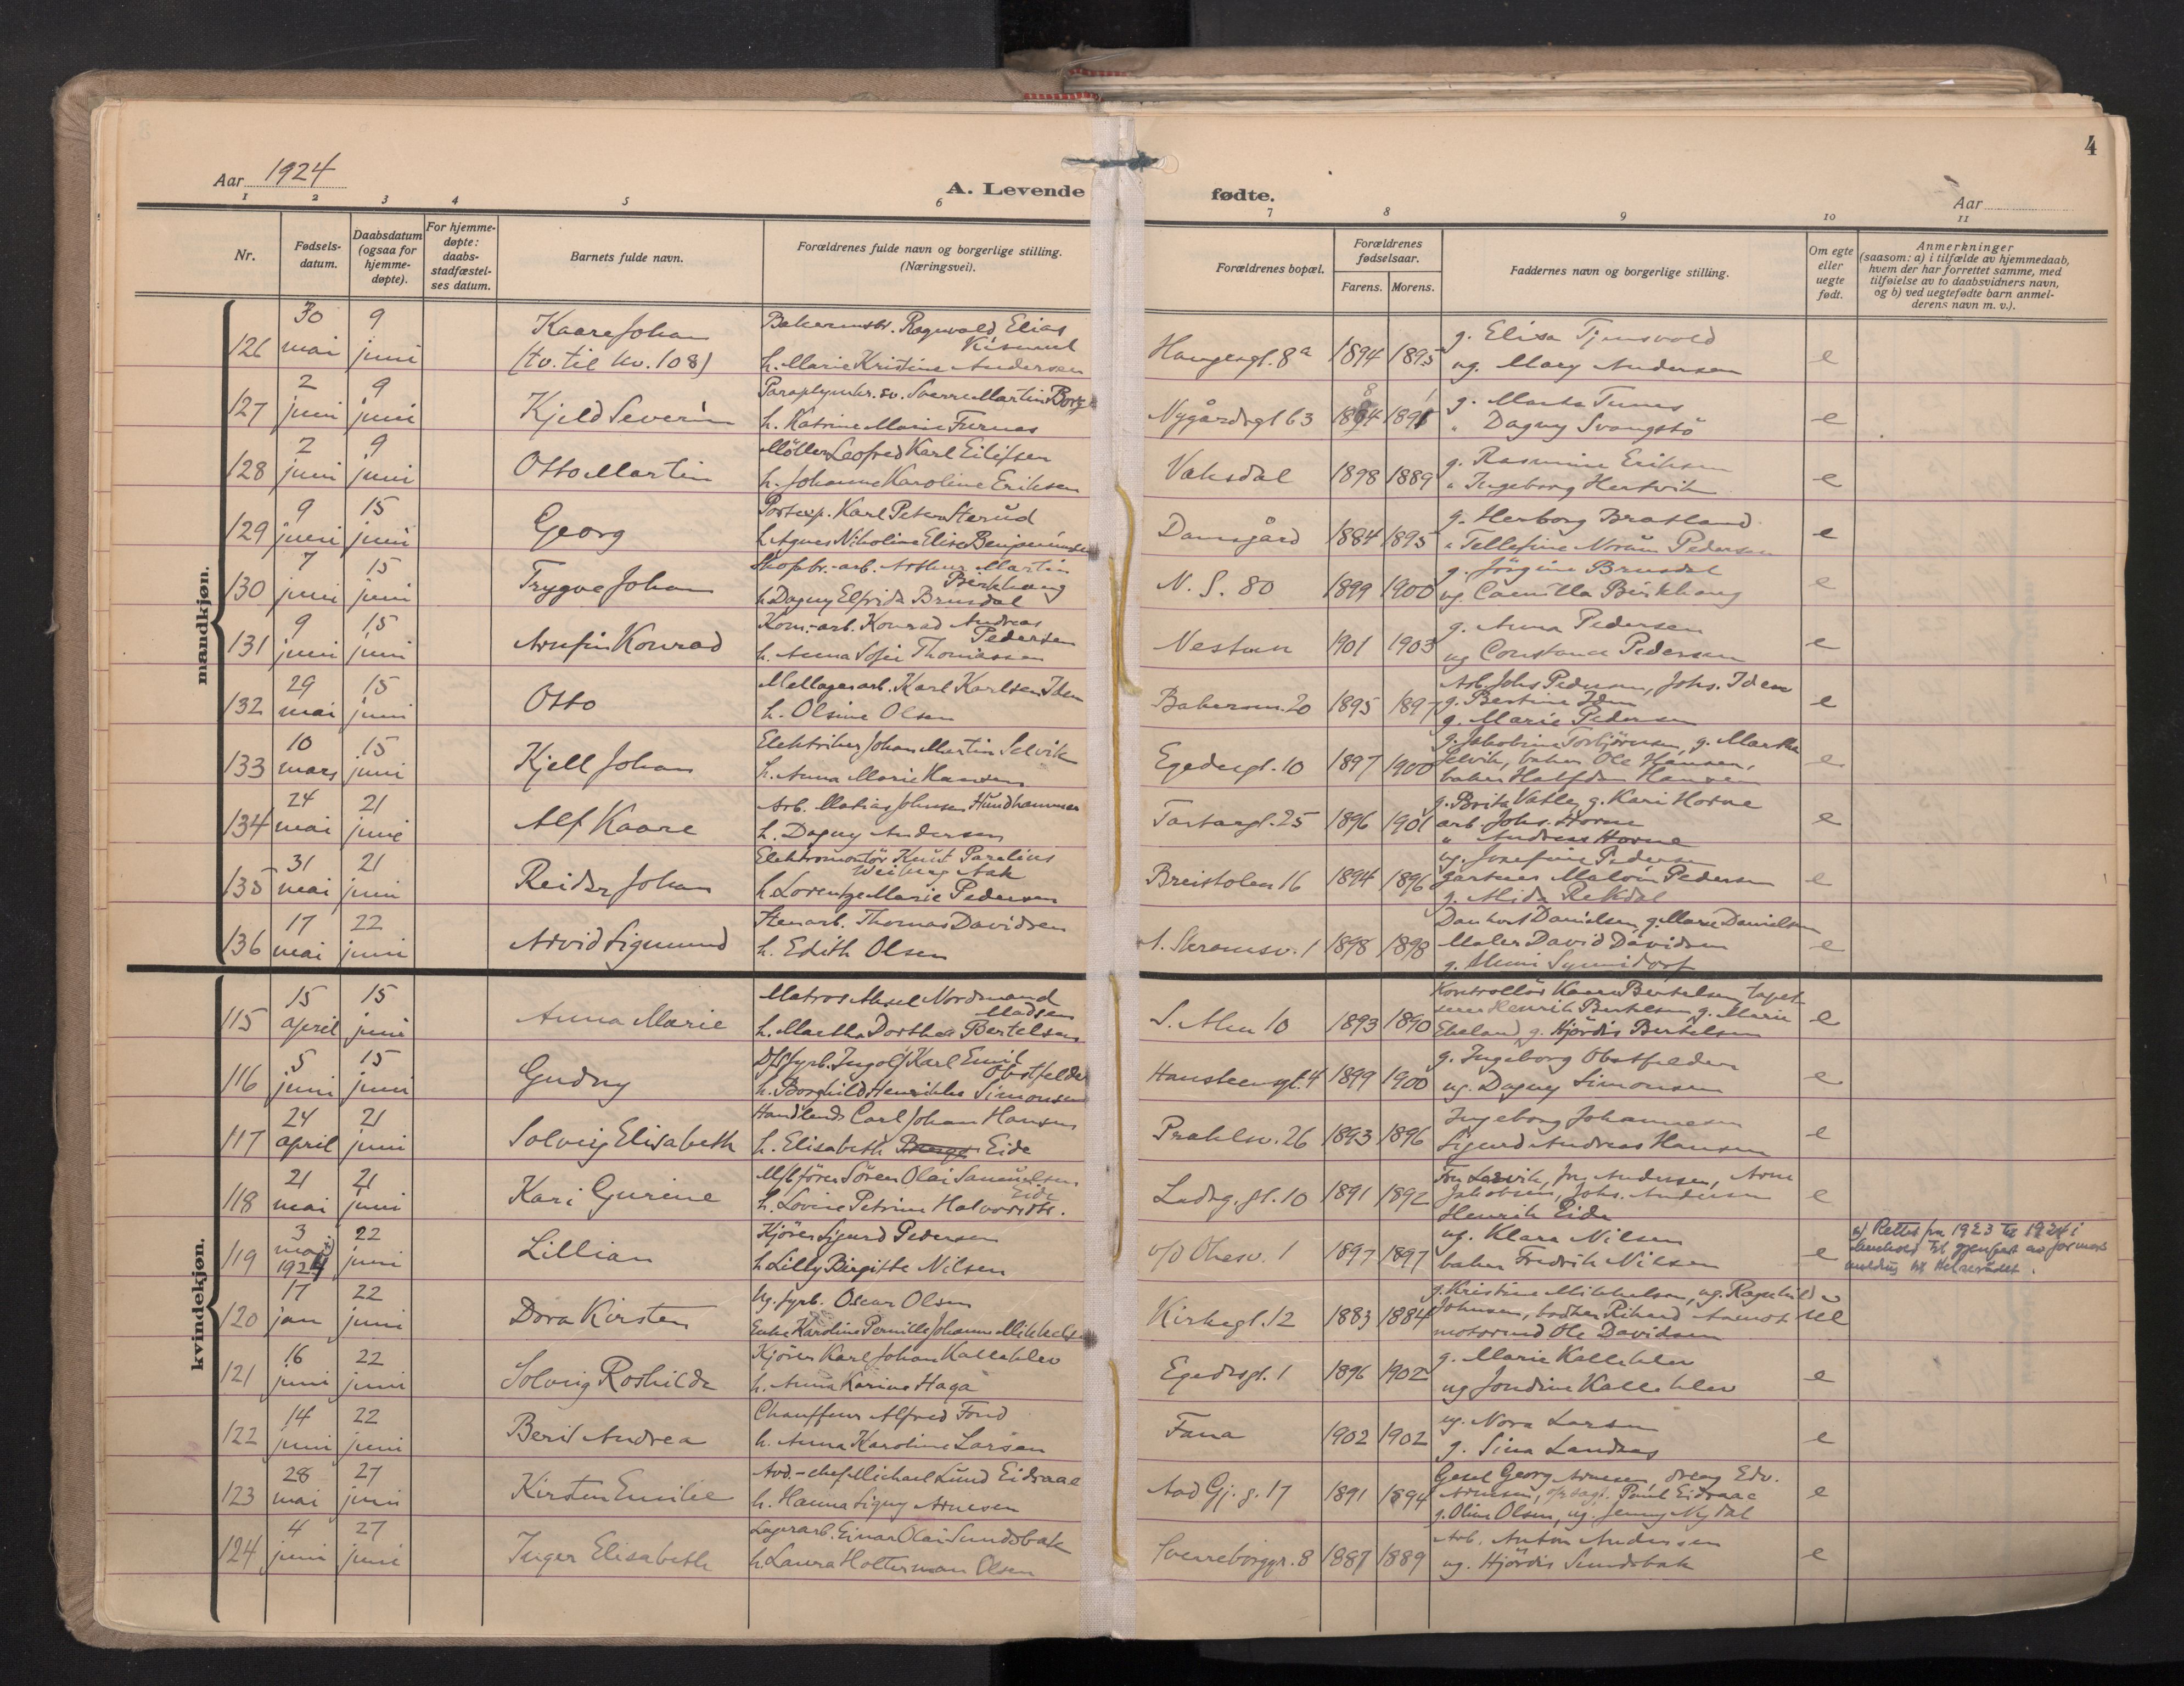 4
Aar 1924
A. Levende fødte.
Aar
1 2 3 4 5 6 7 8 9 10 11
Nr.
Fødsels-
datum.
Daabsdatum
(ogsaa for
hjemme-
døpte).
For hjemme-
døpte:
daabs-
stadfæstel-
ses datum.
Barnets fulde navn.
Forældrenes fulde navn og borgerlige stilling.
(Næringsvei).
Forældrenes bopæl.
Forældrenes
fødselsaar.
Farens. Morens.
Faddernes navn og borgerlige stilling.
Om egte
eller
uegte
født.
Anmerkninger
(saasom: a) i tilfælde av hjemmedaab,
hvem der har forrettet samme, med
tilføielse av to daabsvidners navn,
og b) ved uegtefødte barn anmel-
derens navn m. v.).
mandkjøn.
126 30 mai 9 juni Kaare Johan
(tv. til kv. 108)
Ragnvald Elias
h. Marie Kristine Andersen
Haugesgt. 8a 1894 1895
g. Elisa Tjensvold
ug. Mary Andersen
e
127 2 juni 9 juni Kjeld Severin
Sverre Martin Borge
h. Katrine Marie Furnes
Nygårdsgt 63
g. Marta Tunes
" Dagny Svangstø
e
128 2 juni 9 juni Otto Martin
Møller Leofred Karl Eilifsen
h. Johanne Karoline Eriksen
Vaksdal 1898 1889
g. Rasmine Eriksen
" Ingeborg Hertvik
e
129 9 juni 15 juni Georg
Postexp. Karl Peter Sterud
h. Agnes Nikoline Elise Benjaminsen
Damsgård 1884 1895
g. Herborg Bratland
" Tellefine Norum Pedersen
e
130 7 juni 15 juni Trygve Johan
Skofabr.-arb. Arthur Martin
Birkhaug
h. Dagny Elfrida Brusdal
N. S. 80 1899 1900
g. Jørgine Brusdal
ug. Camilla Birkhaug
e
131 9 juni 15 juni Arnfin Konrad
Kom.-arb. Konrad Andreas
Pedersen
h. Anna Sofie Thomassen
Nestun 1901 1903
g. Anna Pedersen
ug Constance Pedersen
e
132 29 mai 15 juni Otto
Karl Karlsen Iden
h. Olsine Olsen
Bakersm. 20 1895 1897
Arb. Johs Pedersen, Johs. Iden
g. Bertine Iden
g. Marie Pedersen
e
133 10 mars 15 juni Kjell Johan
Elektriker Johan Martin Selvik
h. Anna Marie Hansen
Egedesgt. 10 1897 1900
g. Jakobine Torbjørnsen, g. Martha
Selvik, baker Ole Hansen,
baker Halfdan Hansen
e
134 24 mai 21 juni Alf Kaare
Arb. Matias Johnsen Hundhammer
h. Dagny Andersen
Tartargt. 25 1896 1901
g. Brita Vatle, g. Kari Horne
arb. Johs. Horne
" Andreas Horne
e
135 31 mai 21 juni Reidar Johan
Elektromontör Knut Parelius
Weiberg Aak
h. Lorentze Marie Pedersen
Breistolen 16 1894 1896
ug. Josefine Pedersen
gartner Malvin Pedersen
g. Mida Rekdal
e
136 17 mai 22 juni Arvid Sigmund
Stenarb. Thomas Davidsen
h. Edith Olsen
S. Skremsv. 1 1898 1898
Danielsen, g. Marie Danielsen
Maler David Davidsen
e
kvindekjøn.
115 15 april 15 juni Anna Marie
Matros Aksel Nordmand
Madsen
h. Martha Dorthea Bertelsen
S. Alm 10 1893 1890
Kontrollør Kaare Bertelsen, tapet-
serer Henrik Bertelsen, g. Marie
Ekeland, g. Hjördis Bertelsen
e
116 5 juni 15 juni Gudny
D/S fyrb. Ingolf Karl Emil
Obstfelder
h. Borghild Henrikke Simonsen
Hansteensgt. 4 1899 1900
g. Ingeborg Obstfelder
ug. Dagny Simonsen
e
117 24 april 21 juni Solveig Elisabeth
Carl Johan Hansen
h. Elisabeth Eide
Prahlsv. 26 1893 1896
Ingeborg Johannesen
Sigurd Andreas Hansen
e
118 21 mai 21 juni Kari Gurine
M/sk fører Sören Olai Samuelsen
Eide
h. Lovise Petrine Halvorsdtr.
Ladeg. gt. 10 1891 1892
Fru Ledvik, fru Andersen, Arne
Jakobsen, Johs. Andersen
Henrik Eide
e
119 3 mai 1924 22 juni Lillian
Kjører Sigurd Pedersen
h Lilly Birgitte Nilsen
v/o Ohesv. 1 1897 1897
ug. Klara Nilsen
baker Fredrik Nilsen
e
a) Rettet fra 1923 til 1924 i
henhold til gjenpart av jormors
melding til Helserådet.
120 17 jan 22 juni Dora Kirsten
Ug. fyrb. Oscar Olsen
Enke Karoline Pernille Johanne Mikkelsen
Kirkegt. 12 1883 1884
g. Kristine Mikkelsen, ug. Ragnhild
Johnsen, Rikard
motormd Ole Davidsen
u
121 16 juni 22 juni Solveig Roshilda
Kjører Karl Johan Kalleklev
h. Anna Karine Haga
Egedesgt. 1 1896 1902
g. Marie Kalleklev
ug Jondine Kalleklev
e
122 14 juni 22 juni Berit Andrea
Chauffeur Alfred Fond
h. Anna Karoline Larsen
Fana 1902 1902
ug. Nora Larsen
g. Sina Landaas
e
123 28 mai 27 juni Kirsten Emilie
Avd.-chef Michael Lund Eidraae
h. Hanna Signy Arnesen
Aad Gj. g. 17 1891 1894
Gesel Georg Arnesen, dreng Edv.
Arnesen, Paul Eidraae
g. Oline Olsen, ug. Jenny Nydal
e
124 4 juni 27 juni Inger Elisabeth
Lagerarb. Einar Olai Sundsbak
h. Laura Holterman Olsen
Sverreborggt. 8 1887 1889
Arb. Anton Andersen
ug. Hjördis Sundsbak
e